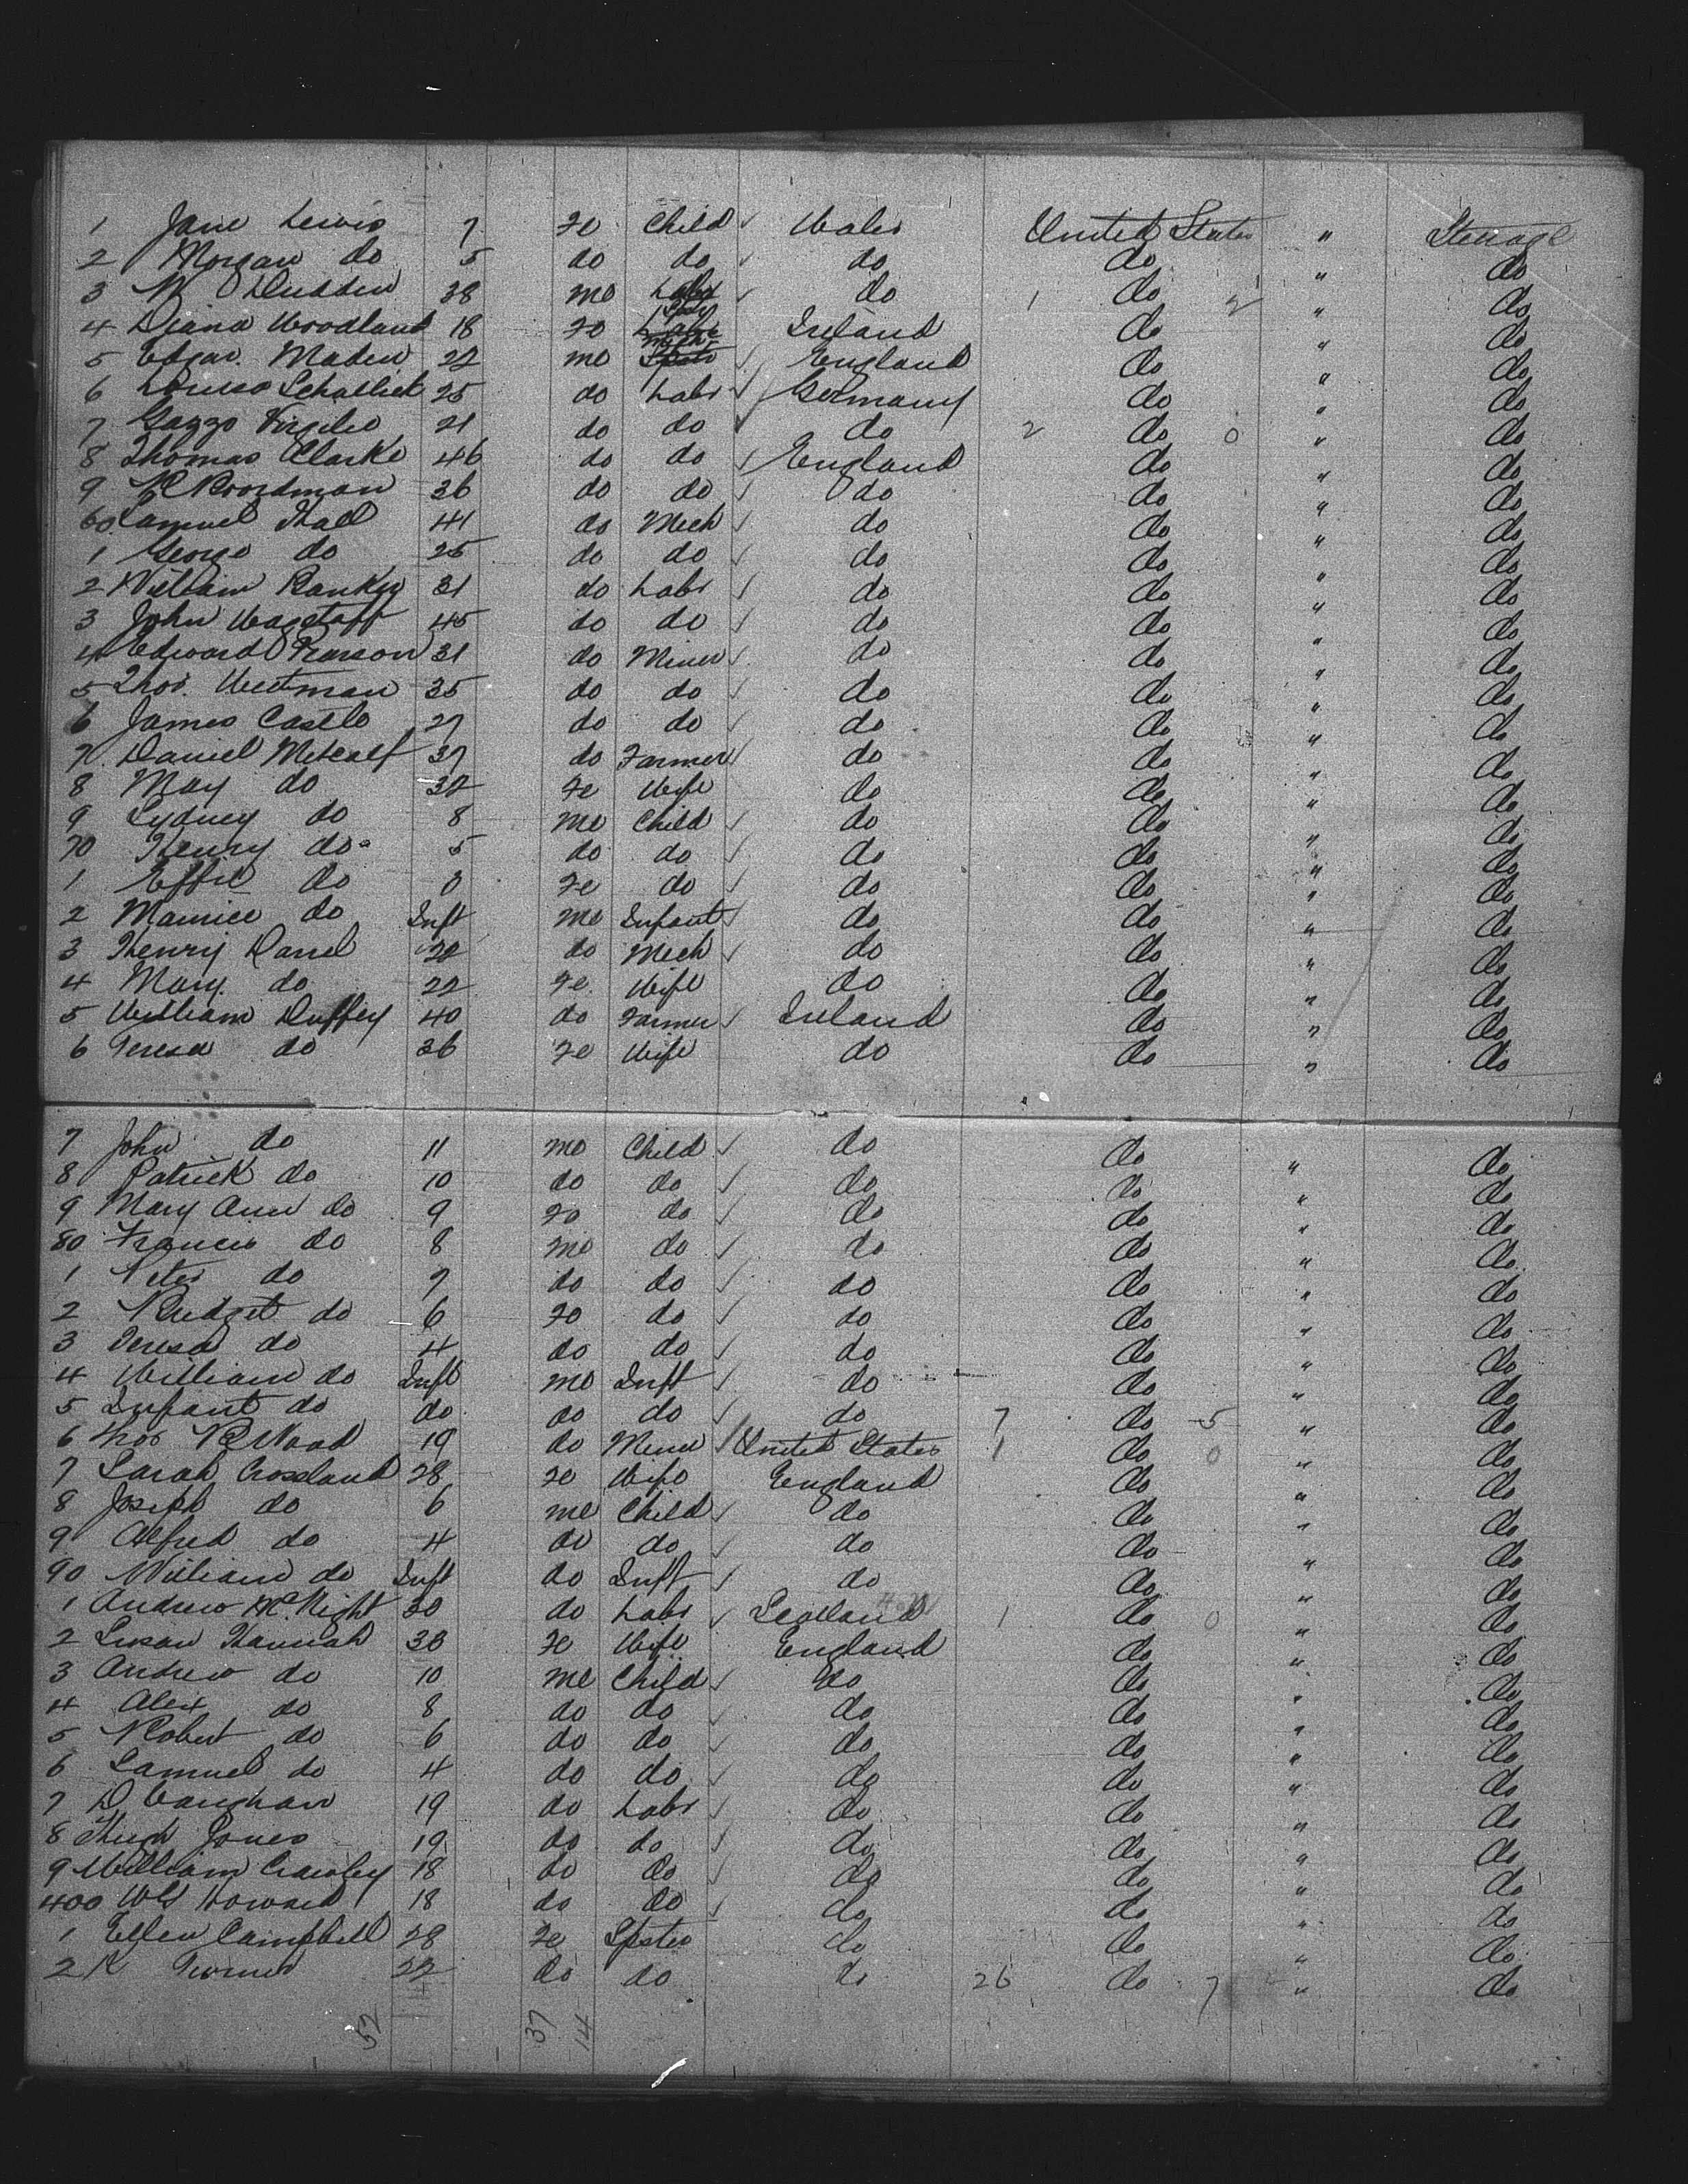 1 Jane Lewis 7 Fe Child ✓ Wales United States " Steerage
2 Morgan do 5 do do ✓ do do " do
3 W Dudden 38 me Labr ✓ do 1 do 2 " do
4 Diana Woodland 18 Fe Spstr Ireland do " do
5 Edgar Maden 22 me Mech ✓ England do " do
6 25 do Labr ✓ Germany do " do
7 Gazzo Virgilio 21 do do ✓ do 2 do 0 " do
8 Thomas Clarke 46 do do ✓ England do " do
9 R Boordman 36 do do ✓ do do " do
60 Samuel Hall 41 do Mech ✓ do do " do
1 George do 25 do do ✓ do do " do
2 William 31 do Labr ✓ do do " do
3 John Wagstaff 45 do do ✓ do do " do
4 Edward Pearson 31 do Miner ✓ do do " do
5 Thos. 35 do do ✓ do do " do
6 James Castle 27 do do ✓ do do " do
7 Daniel Metcalf 37 do Farmer ✓ do do " do
8 May do 32 Fe Wife do do " do
9 Sydney do 8 me Child ✓ do do " do
70 Henry do 5 do do ✓ do do " do
1 Effie do 3 Fe do ✓ do do " do
2 Maurice do Inft me Infant ✓ do do " do
3 Henry 22 do Mech ✓ do do " do
4 Mary do 22 Fe Wife do do " do
5 William Duffey 40 do Farmer ✓ Ireland do " do
6 Teresa do 36 Fe Wife do do " do
7 John do 11 me Child ✓ do do " do
8 Patrick do 10 do do ✓ do do " do
9 Mary Ann do 9 Fe do ✓ do do " do
80 Francis do 8 me do ✓ do do " do
1 Peter do 7 do do ✓ do do " do
2 Bridget do 6 Fe do ✓ do do " do
3 Teresa do 4 do do ✓ do do " do
4 William do Inft me Inft ✓ do do " do
5 Infant do do do do ✓ do 7 do 5 " do
6 Thos B Wood 19 do Miner ✓ United States 1 do 0 " do
7 Sarah Crossland 28 Fe Wife England do " do
8 Joseph do 6 me Child ✓ do do " do
9 Alfred do 4 do do ✓ do do " do
90 William do Inft do Inft ✓ do do " do
1 Andrew McNight 30 do Labr ✓ Scotland 1 do 0 " do
2 Susan Hannah 36 Fe Wife England do " do
3 Andrew do 10 me Child ✓ do do " do
4 Alex do 8 do do ✓ do do " do
5 Robert do 6 do do ✓ do do " do
6 Samuel do 4 do do ✓ do do " do
7 D Vaughan 19 do Labr ✓ do do " do
8 Hugh Jones 19 do do ✓ do do " do
9 William Crawley 18 do do ✓ do do " do
400 Wm Howard 18 do do ✓ do do " do
1 Ellen Campbell 28 Fe Spster do do " do
2 K 22 do do do 26 do 7 " do
52 37 14